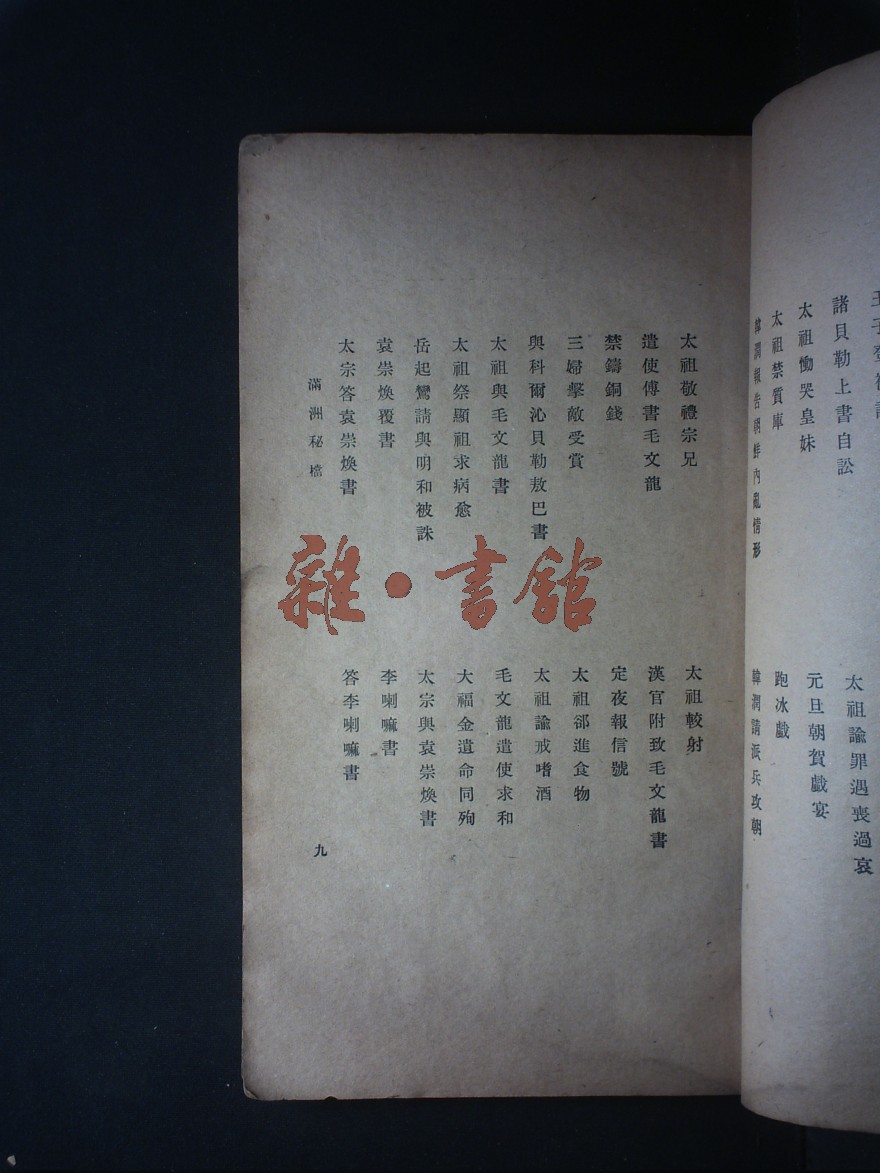 諸貝勒上書自訟
太祖諭罪遇喪過哀
太祖慟哭皇妹
元旦朝賀戲宴
太祖禁質庫
跑冰戲
韓潤報告朝鮮內亂情形
韓潤請派兵攻朝
太祖敬禮宗兄
太祖較射
遣使傳書毛文龍
漢官附致毛文龍書
禁鑄銅錢
定夜報信號
三婦擊敵受賞
太祖郤進食物
與科爾沁貝勒敖巴書
太祖諭戒嗜酒
太祖與毛文龍書
毛文龍遣使求和
太祖祭顯祖求病愈
大福金遺命同殉
岳起鸞請與明和被誅
太宗與袁崇煥書
袁崇煥覆書
李喇嘛書
太宗答袁崇煥書
答李喇嘛書
滿洲秘檔
九
雜·書館